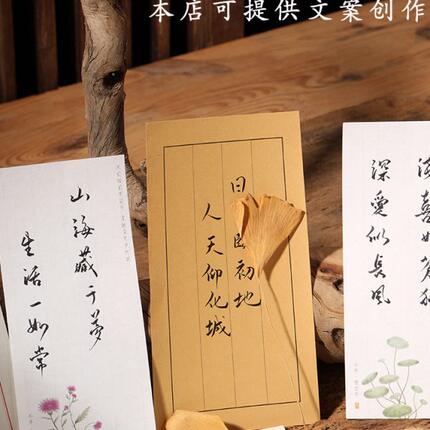 本店可提供文案创作
山海藏于梦
生活一如常
日 初地
人天仰化城
浅喜如苍狗
深爱似长风